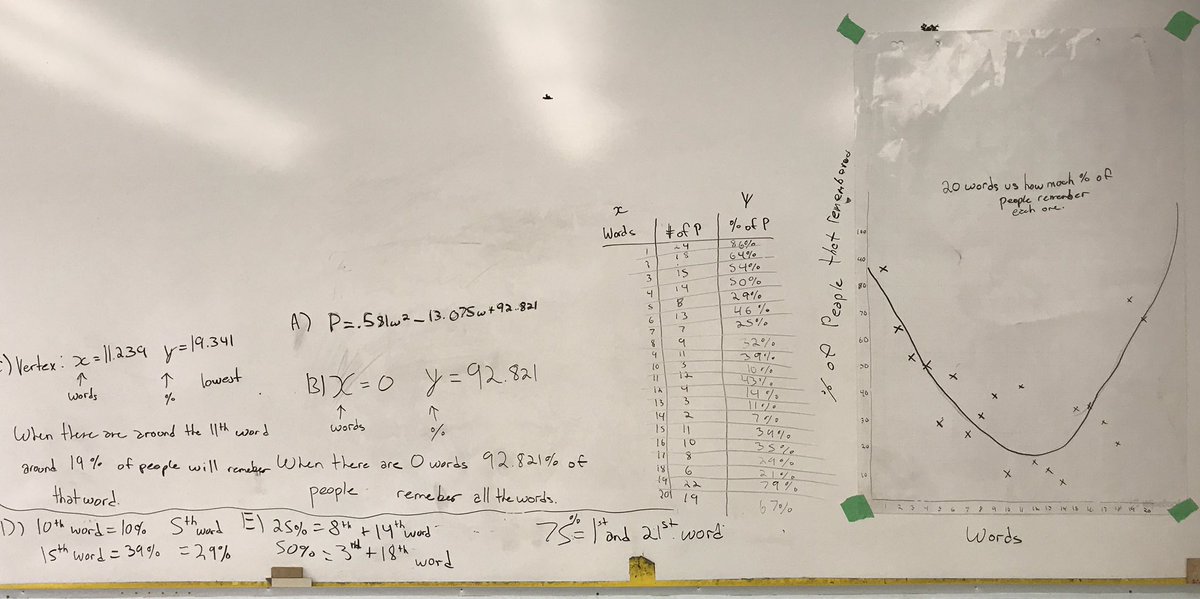 A) P=.581w²-13.075w+92.821
Vertex: x=11.239 y=19.341
↑ ↑ lowest
words %
When there are around the 11th word
around 19% of people will remeber
that word.
B) X=0 y=92.821
↑ ↑
words %
When there are 0 words 92.821% of
people remeber all the words.
D) 10th word=10% 5th word
15th word=39% =29%
E) 25%=8th+14th word
50%=3rd+18th word
75%=1st and 21st word
x y
Words # of P % of P
1 24 86%
2 18 64%
3 15 54%
4 14 50%
5 8 29%
6 13 46%
7 7 25%
8 9 32%
9 11 39%
10 3 10%
11 12 43%
12 4 14%
13 3 11%
14 2 7%
15 11 39%
16 10 35%
17 8 29%
18 6 21%
19 22 79%
20 19 67%
% of People that remembered
20 words vs how much % of
people remember
each one.
80
70
60
50
40
30
20
10
2 3 4 5 6 7 8 9 10 11 12 13 14 15 16 17 18 19 20
Words